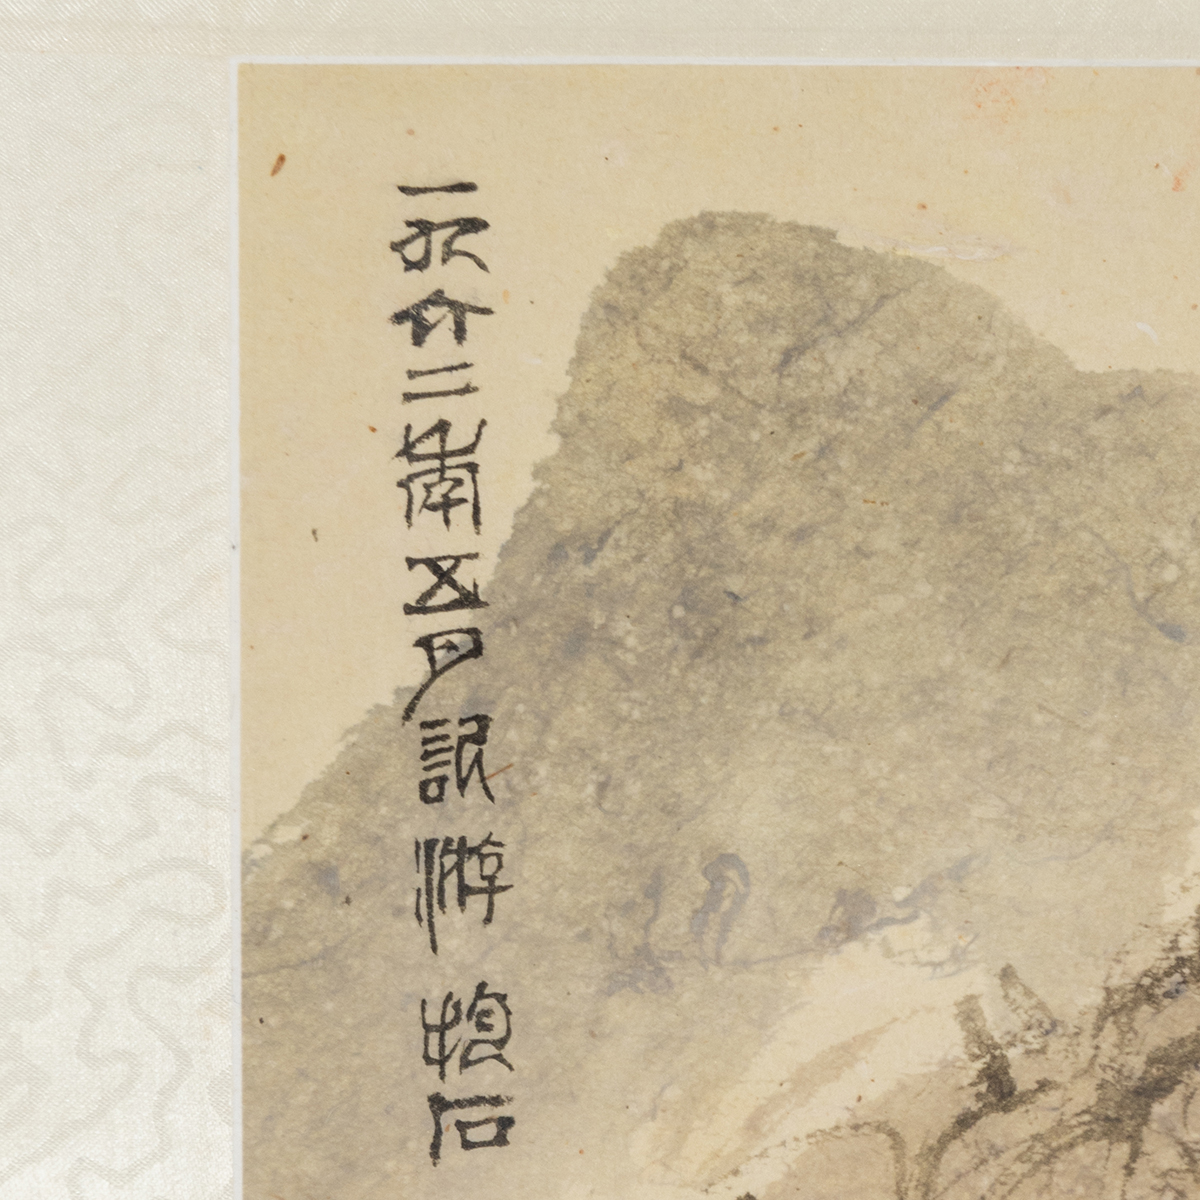 一九六二年五月記游 抱石